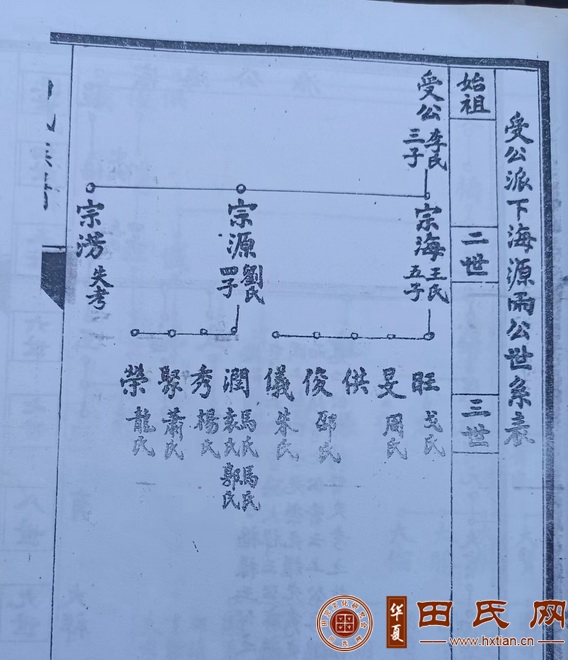 受公派下海源兩公世系表
始祖
二世
三世
受公
李氏
三子
宗海
王氏
五子
宗源
劉氏
四子
宗澇
失考
旺
戈氏
旻
周氏
供
俊
邵氏
儀
朱氏
潤
馬氏
馬氏
袁氏
郭氏
秀
楊氏
聚
蕭氏
榮
龍氏
華夏
田氏网
www.hxtian.cn